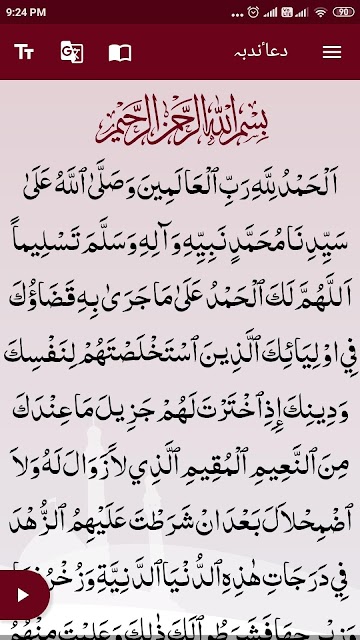 9:24 PM
90
دعاٴندبہ
بِسْمِ اللّٰهِ الرَّحْمٰنِ الرَّحِيْمِ
اَلْحَمْدُ لِلّٰهِ رَبِّ ٱلْعَالَمِينَ وَصَلَّىٰ ٱللَّهُ عَلَىٰ
سَيِّدِنَا مُحَمَّدٍ نَبِيِّهِ وَآلِهِ وَسَلَّمَ تَسْلِيماً
اَللَّهُمَّ لَكَ ٱلْحَمْدُ عَلَىٰ مَا جَرَىٰ بِهِ قَضَاؤُكَ
فِي اوْلِيَائِكَ ٱلَّذِينَ ٱسْتَخْلَصْتَهُمْ لِنَفْسِكَ
وَدِينِكَ إِذِ ٱخْتَرْتَ لَهُمْ جَزِيلَ مَا عِنْدَكَ
مِنَ ٱلنَّعِيمِ ٱلْمُقِيمِ ٱلَّذِي لاَ زَوَالَ لَهُ وَلاَ
ٱضْمِحْلاَلَ بَعْدَ انْ شَرَطْتَ عَلَيْهِمُ ٱلزُّهْدَ
فِي دَرَجَاتِ هٰذِهِ ٱلدُّنْيَا ٱلدَّنِيَّةِ وَزُخْرُفِهَا
وَزِبْرِجِهَا فَشَرَطُوٱ لَكَ ذٰلِكَ وَعَلِمْتَ مِنْهُمُ